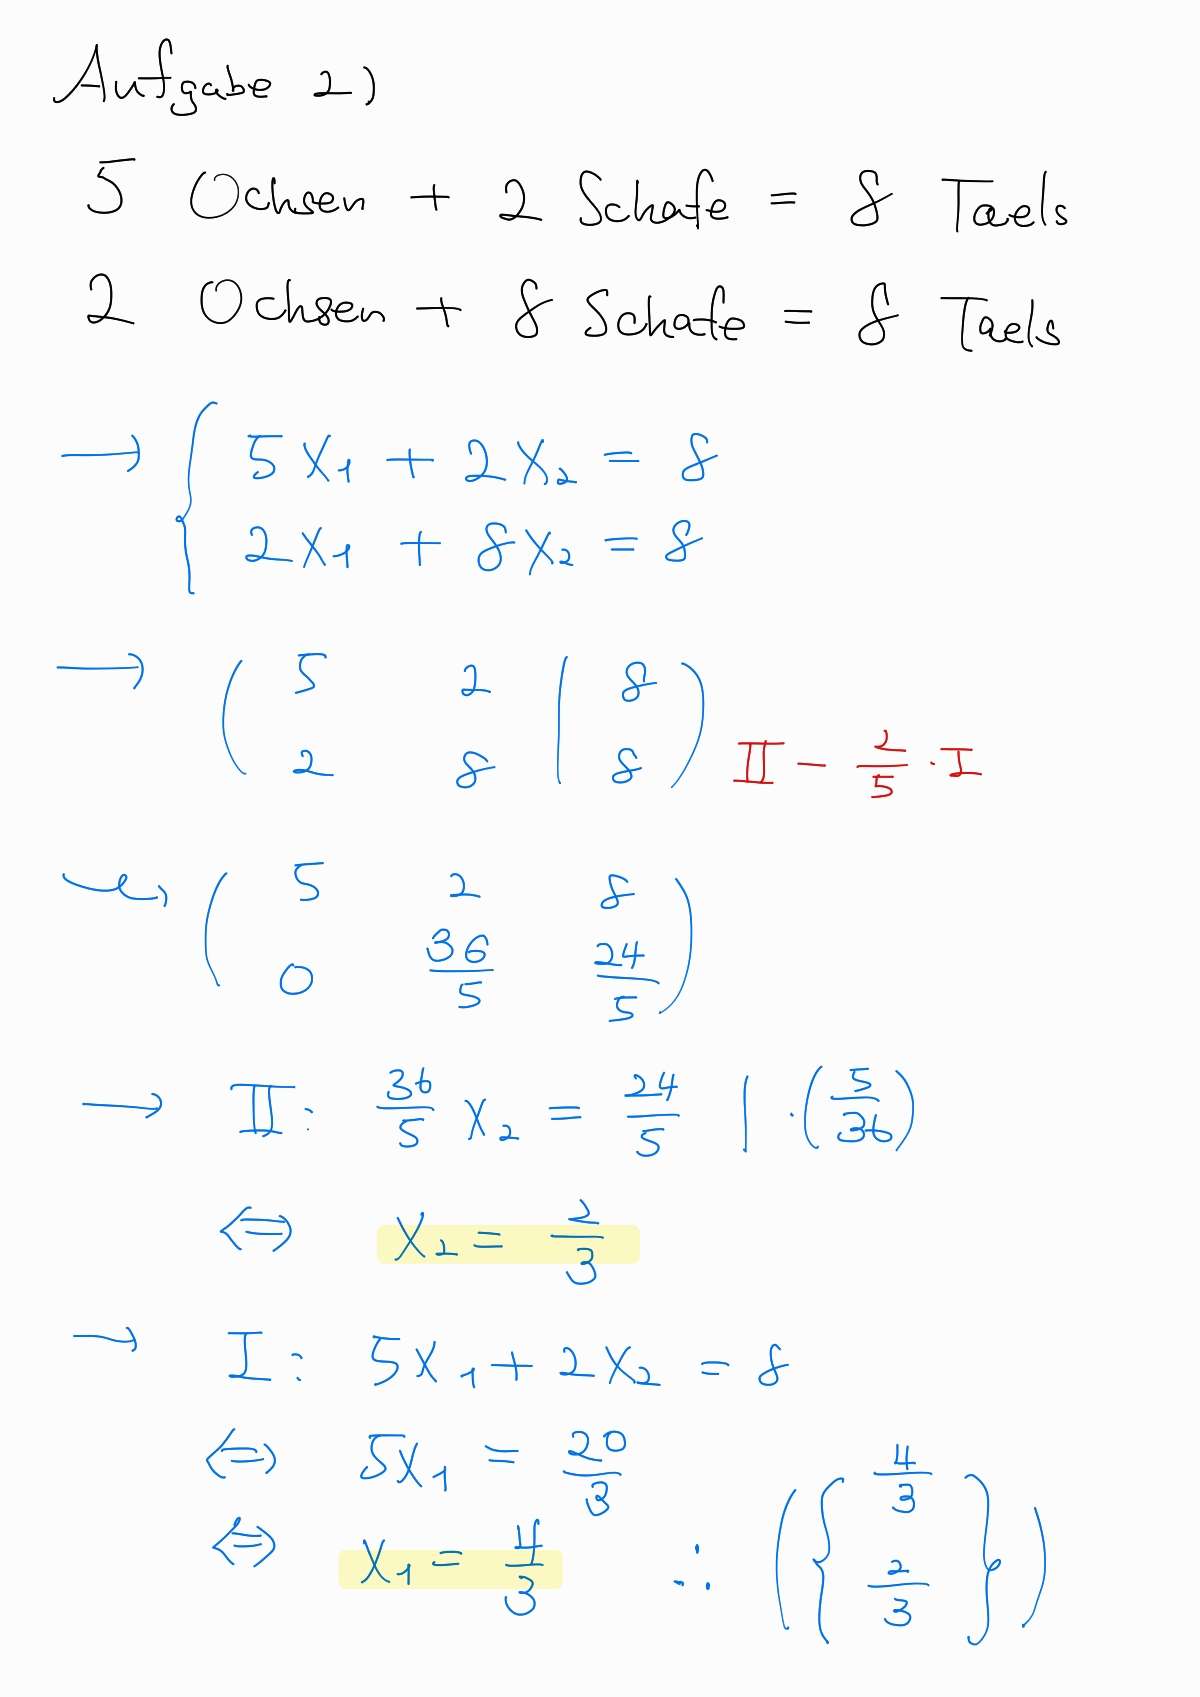 Aufgabe 2)
5 Ochsen + 2 Schafe = 8 Taels
2 Ochsen + 8 Schafe = 8 Taels
→ { 5x₁ + 2x₂ = 8
2x₁ + 8x₂ = 8
→ ( 5 2 | 8
2 8 | 8 ) II - 2/5 · I
⇝ ( 5 2 8
0 36/5 24/5 )
→ II: 36/5 x₂ = 24/5 | · (5/36)
⇔ x₂ = 2/3
→ I: 5x₁ + 2x₂ = 8
⇔ 5x₁ = 20/3
⇔ x₁ = 4/3 ∴ ({ 4/3 2/3 })